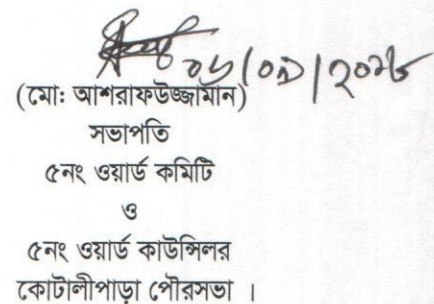 ০৬/০৯/২০১৮
(মোঃ আশরাফউজ্জামান)
সভাপতি
৫নং ওয়ার্ড কমিটি
ও
৫নং ওয়ার্ড কাউন্সিলর
কোটালীপাড়া পৌরসভা ।